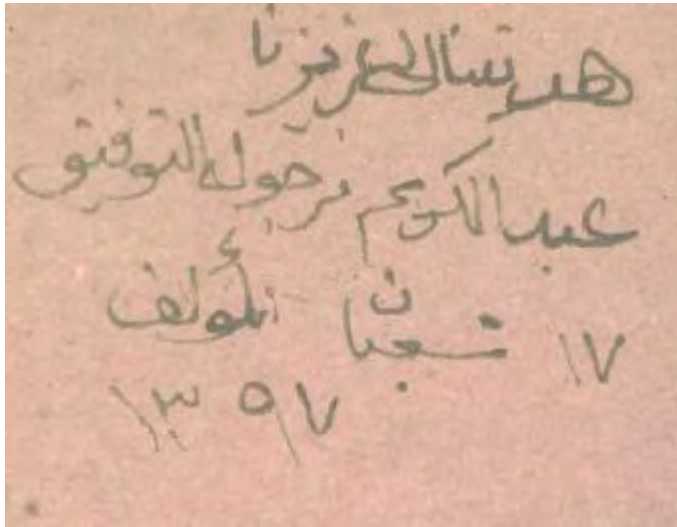 هديتنا لعزيزنا
عبد الكريم نرجو له التوفيق
١٧ شعبان المؤلف
١٣٩٧